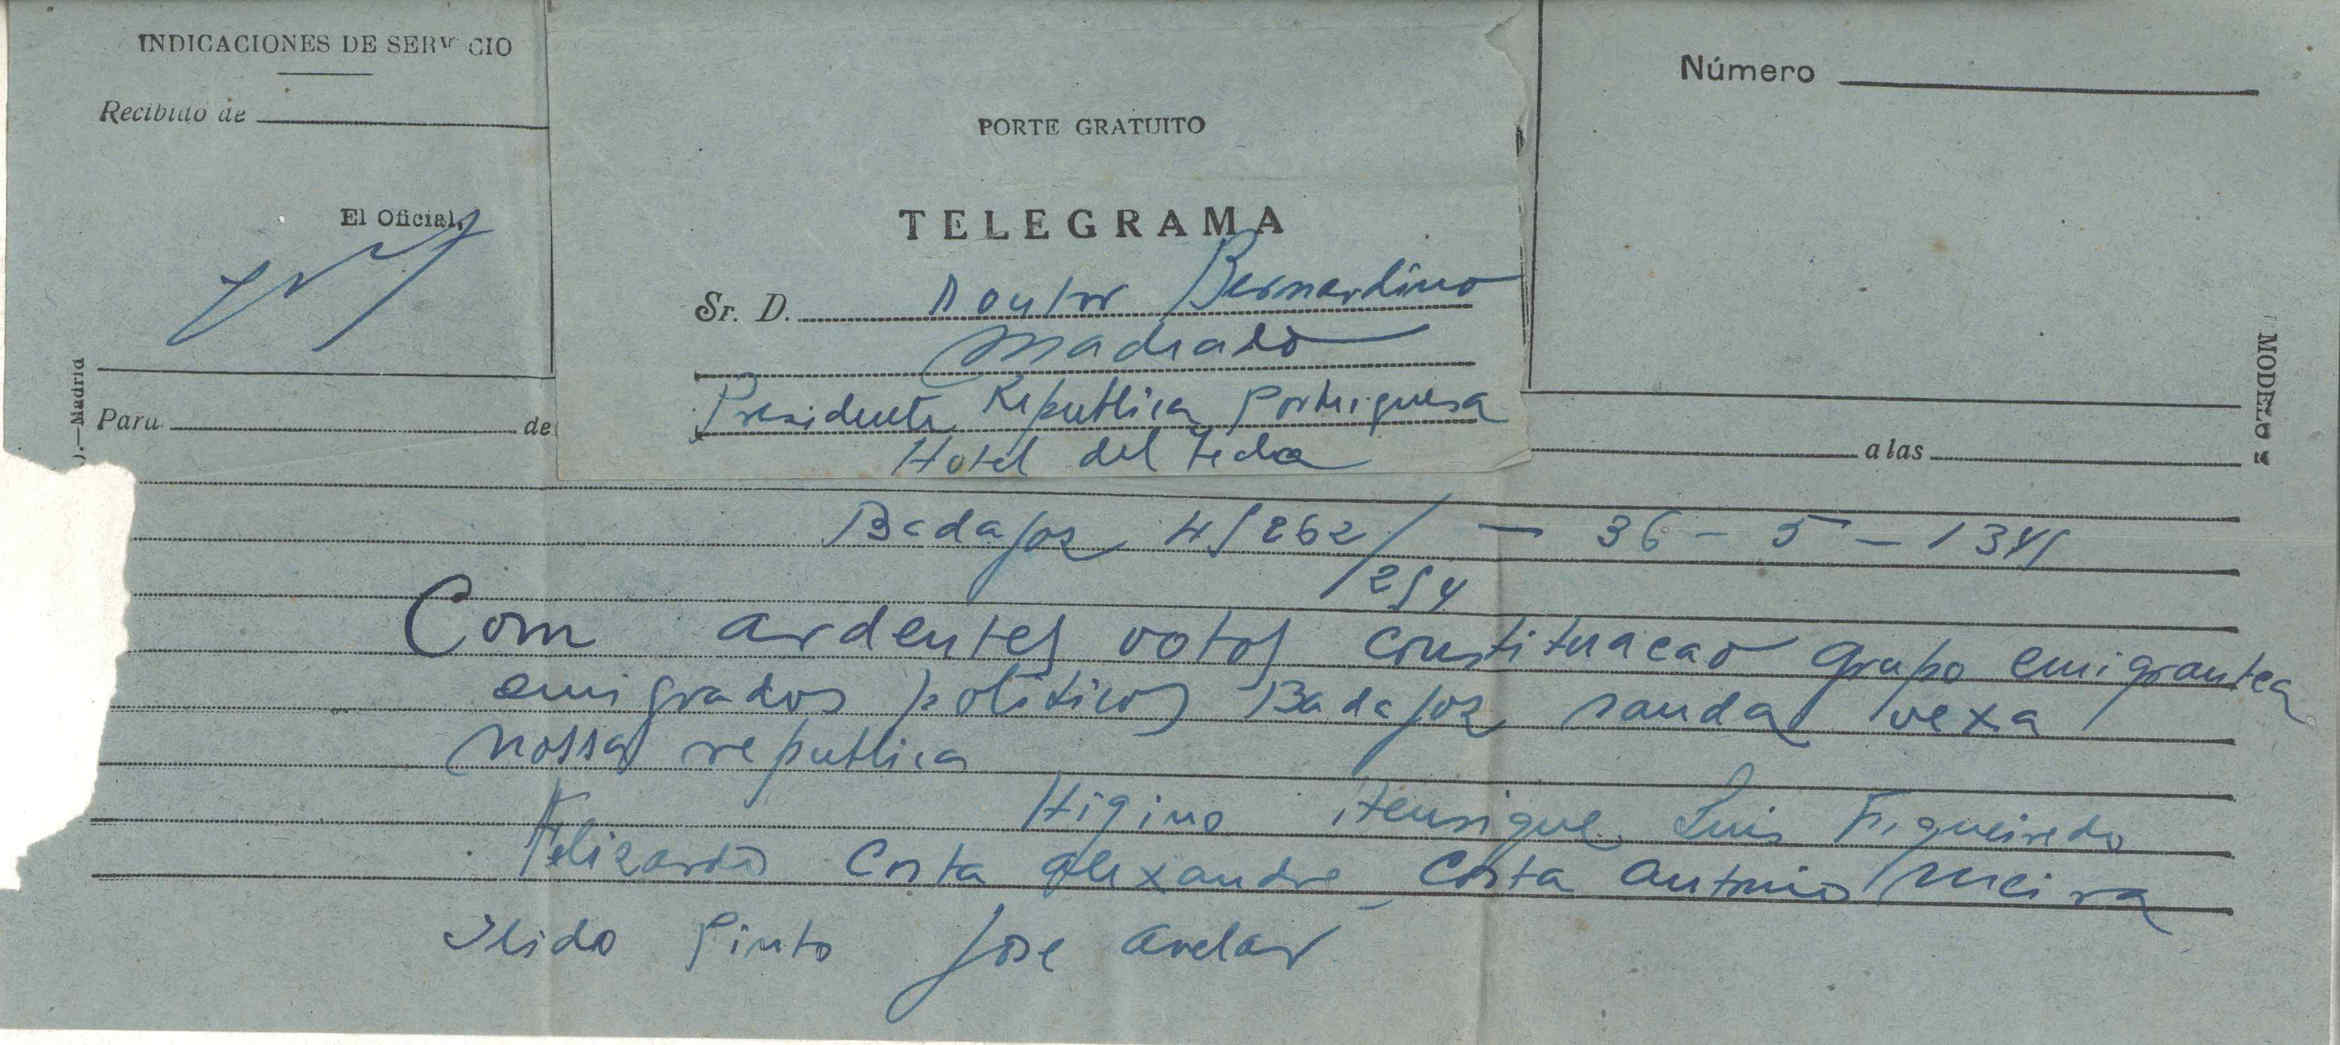 INDICACIONES DE SERVICIO
Recibido de
El Oficial,
PORTE GRATUITO
TELEGRAMA
Sr. D. Doutor Bernardino
Machado
Presidente Republica Portuguesa
Hotel del
Número
Madrid
MODELO
Para de a las
Badajoz 45262/254 — 36 — 5 — 1345
Com ardentes votos constituacao grupo emigrantea
emigrados politicos Badajoz sauda vexa
nossa republica
Higino Henrique Luis Figueiredo
Felizardo Costa Alexandre Costa Antonio Meira
Ilido Pinto Jose Avelar